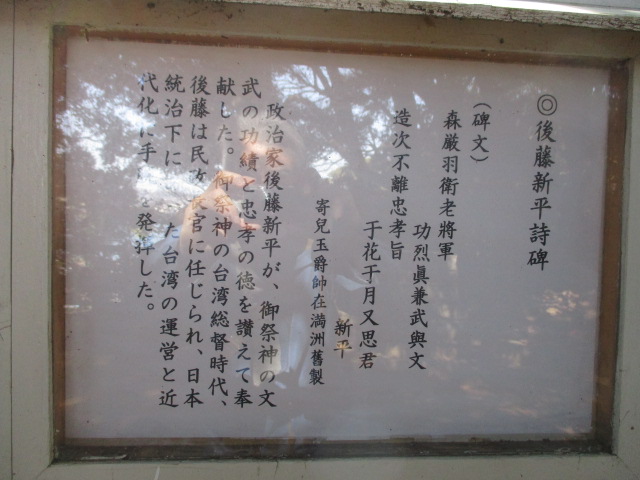 ◎後藤新平詩碑
(碑文)
森厳羽衛老將軍
功烈眞兼武與文
造次不離忠孝旨
于花于月又思君
新平
寄兒玉爵帥在満洲舊製
政治家後藤新平が、御祭神の文
武の功績と忠孝の徳を讃えて奉
献した。御祭神の台湾総督時代、
後藤は民政長官に任じられ、日本
統治下に った台湾の運営と近
代化に手 を発揮した。